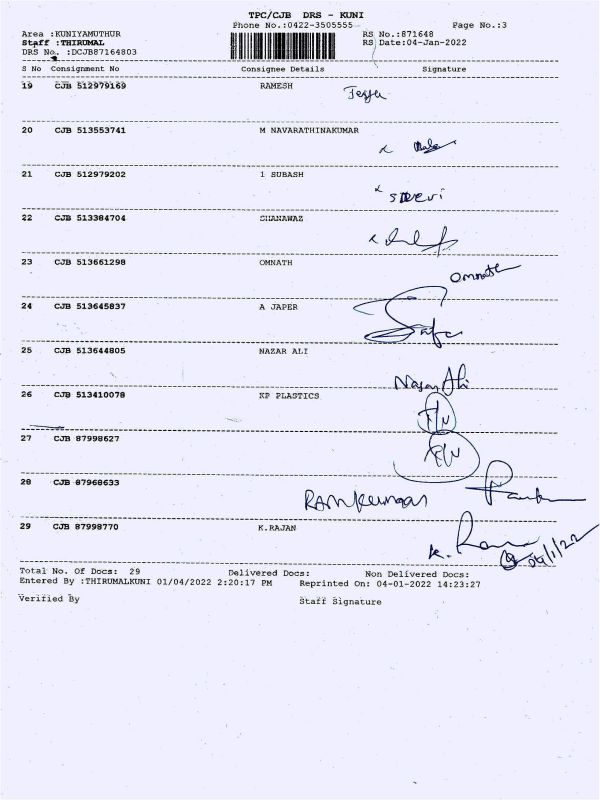 TPC/CJB DRS - KUNI
Phone No.:0422-3505555 Page No.:3
Area :KUNIYAMUTHUR RS No.:871648
Staff :THIRUMAL RS Date:04-Jan-2022
DRS No. :DCJB87164803
S No Consignment No Consignee Details Signature
19 CJB 512979169 RAMESH
20 CJB 513553741 M NAVARATHINAKUMAR
21 CJB 512979202 1 SUBASH
22 CJB 513384704 SHANAWAZ
23 CJB 513661298 OMNATH
Omnath
24 CJB 513645837 A JAPER
25 CJB 513644805 NAZAR ALI
Nasar Ali
26 CJB 513410078 KP PLASTICS
27 CJB 87998627
28 CJB 87968633
Ramkumar
29 CJB 87998770 K.RAJAN
K. 04/1/22
Total No. Of Docs: 29 Delivered Docs: Non Delivered Docs:
Entered By :THIRUMALKUNI 01/04/2022 2:20:17 PM Reprinted On: 04-01-2022 14:23:27
Verified By Staff Signature